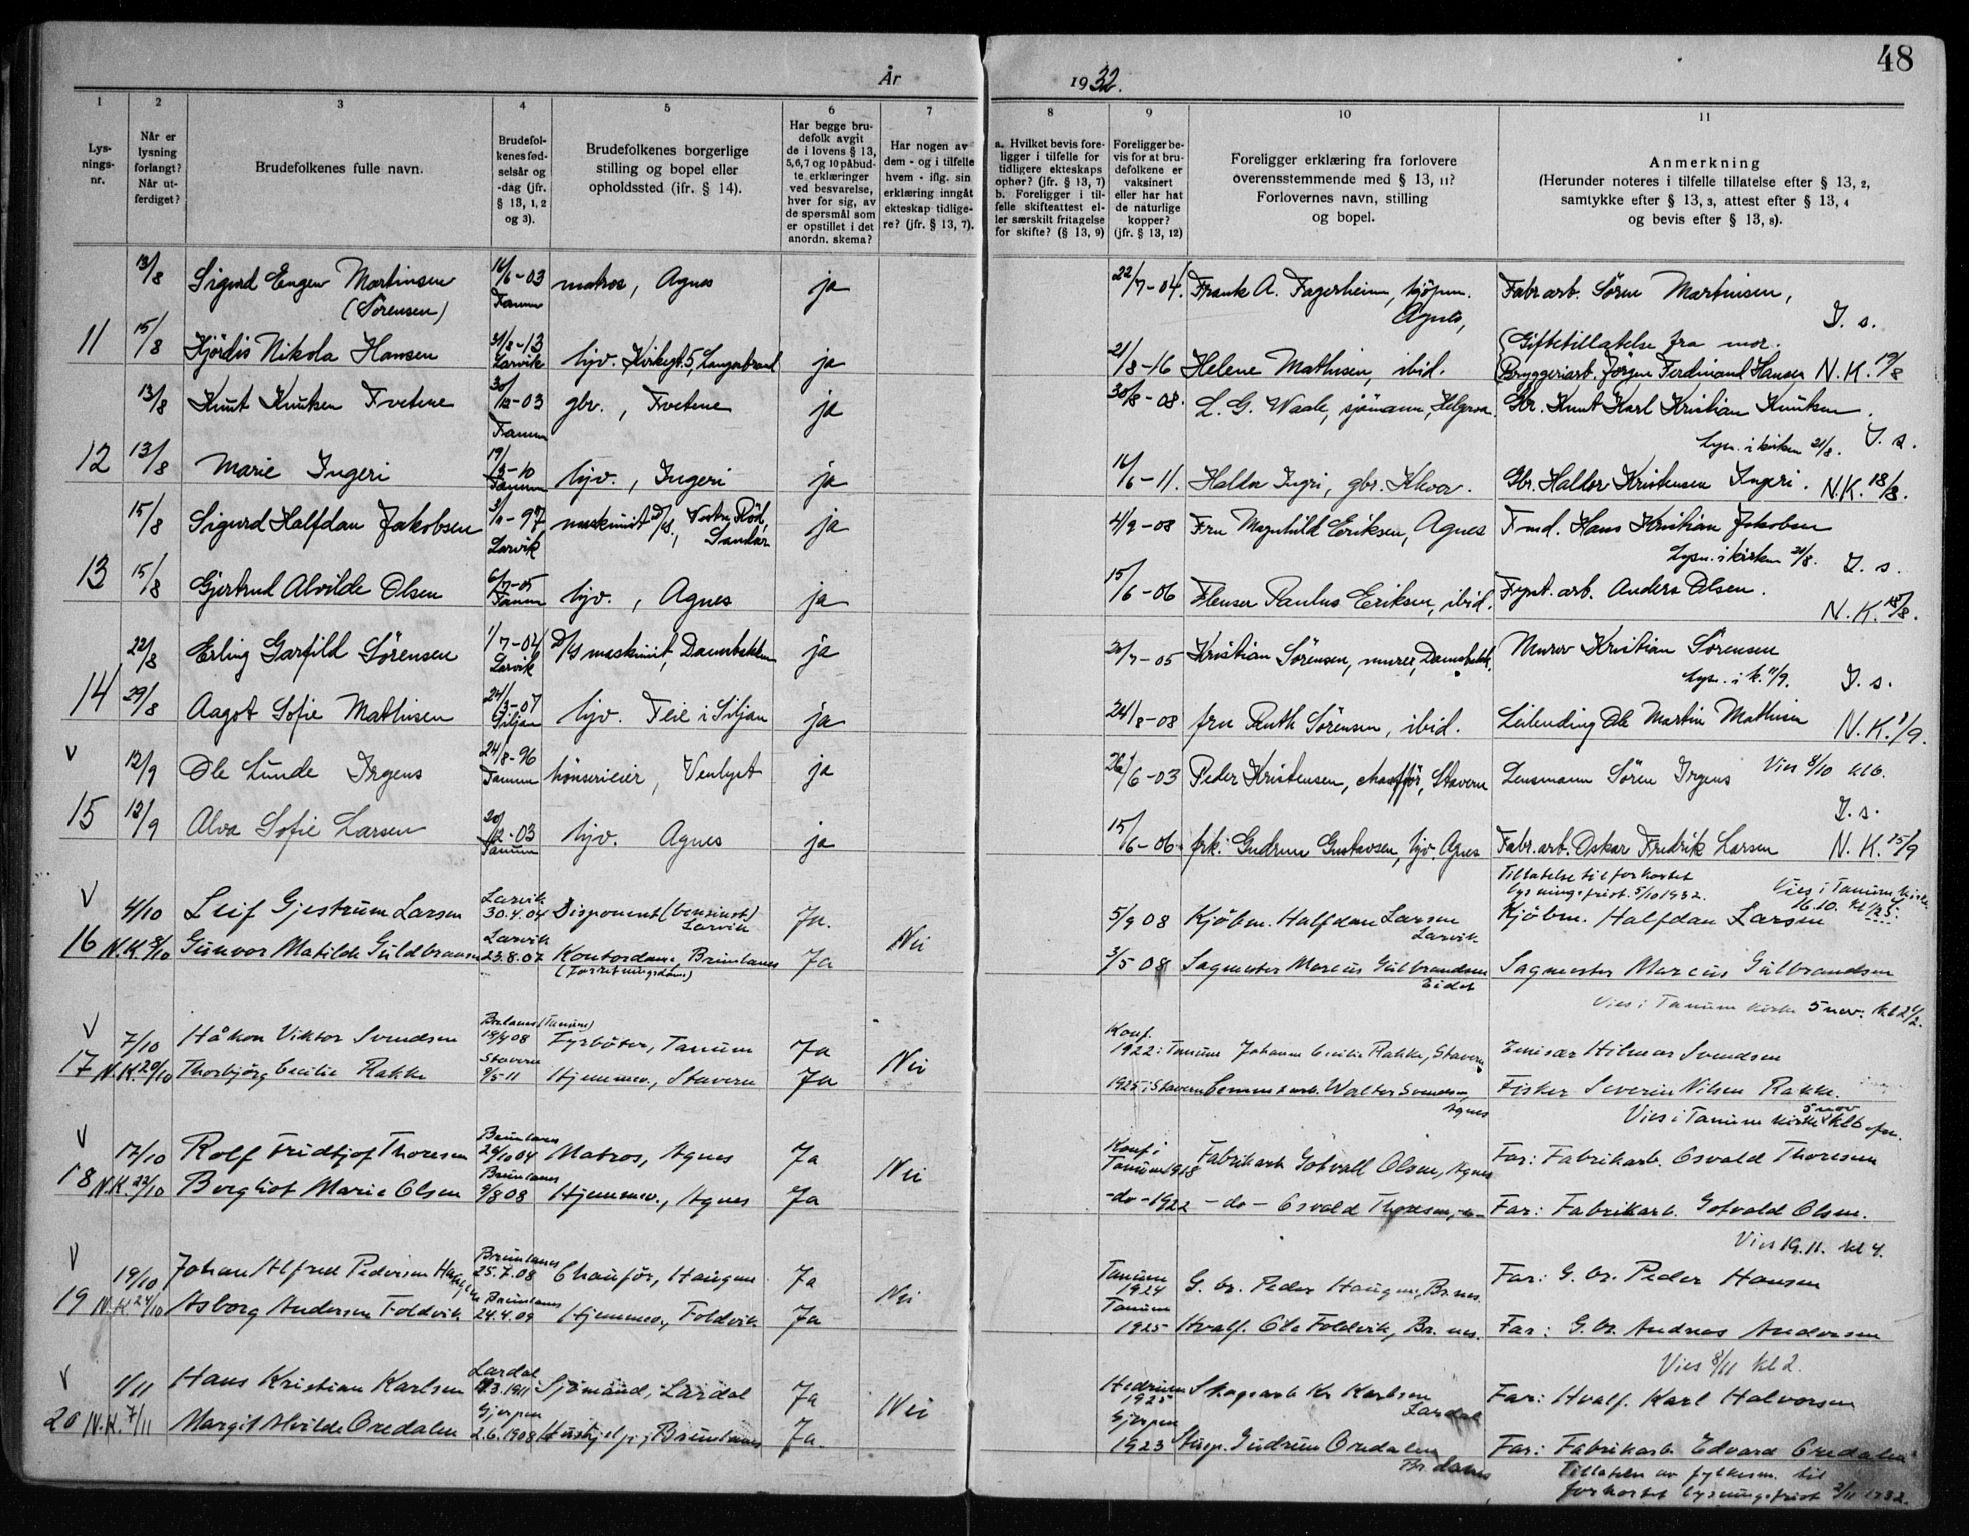 48
År 1932.
1 2 3 4 5 6 7 8 9 10 11
Lys-
nings-
nr.
Når er
lysning
forlangt?
Når ut-
ferdiget?
Brudefolkenes fulle navn.
Brudefol-
kenes fød-
selsår og
-dag (jfr.
§ 13, 1, 2
og 3).
Brudefolkenes borgerlige
stilling og bopel eller
opholdssted (ifr. § 14).
Har begge bru-
defolk avgit
de i lovens § 13,
5,6,7 og 10 påbud-
te erklæringer
ved besvarelse,
hver for sig, av
de spørsmål som
er opstillet i det
anordn. skema?
Har nogen av
dem - og i tilfelle
hvem - iflg. sin
erklæring inngåt
ekteskap tidlige-
re? (jfr. § 13, 7).
a. Hvilket bevis fore-
ligger i tilfelle for
tidligere ekteskaps
ophør? (jfr. § 13, 7)
b. Foreligger i til-
felle skifteattest el-
ler særskilt fritagelse
for skifte? (§ 13, 9)
Foreligger be-
vis for at bru-
defolkene er
vaksinert
eller har hat
de naturlige
kopper?
(jfr. § 13, 12)
Foreligger erklæring fra forlovere
overensstemmende med § 13, 11?
Forlovernes navn, stilling
og bopel.
Anmerkning
(Herunder noteres i tilfelle tillatelse efter § 13, 2,
samtykke efter § 13, 3, attest efter § 13, 4
og bevis efter § 13, 8).
13/8 Sigurd Engen Martinsen 16/6-03 matros, Agnes ja 22/7-04. Frank A. Fagerheim, kjøpm. Fabr.arb. Søren Martinsen,
(Sörensen) Tanum Agnes, J. s.
Giftetillatelse fra mor.
11 15/8 Hjördis Nikola Hansen 31/8-13 Larvik hjv. Kirkegt. 5, Langestrand ja 21/8-16 Helene Mathisen, ibid. Bryggeriarb. Jörgen Ferdinand Hansen N.K. 19/8
13/8 Knut Knutsen Tvetene 30/12-03 gbr., Tvetene ja 30/8-08. L. G. Waale, sjömann, Helgeroa. Gbr. Knut Karl Kristian Knutsen.
Tanum Lysn. i kirken 21/8. J. s.
12 13/8 Marie Ingeri 19/3-10 Tanum hjv., Ingeri ja 16/6-11. Haldor Ingri, gbr. Khvor. Gbr. Haldor Kristensen Ingeri. N.K. 18/8.
15/8 Sigurd Halfdan Jakobsen 3/9-97 maskinist D/S., Vestre Röd, ja 4/9-08 Fru Magnhild Eriksen, Agnes Tmd. Hans Kristian Jakobsen
Larvik Sandar Lysn. i kirken 21/8. J. s.
13 15/8 Gjertrud Alvilde Olsen 6/7-05 Tanum hjv., Agnes ja 15/6-06 Flenser Paulus Eriksen, ibid. Fyrst. arb. Anders Olsen.
N.K. 18/8.
22/8 Erling Garfild Sörensen 1/7-04 Larvik D/S maskinist, Dammbakken ja 20/7-05 Kristian Sörensen, murer, Dambakk. Murer Kristian Sörensen
Lysn. i k. 11/9. J. s.
14 29/8 Aagot Sofie Mathisen 24/3-07 Siljan hjv. Teie i Siljan ja 24/8-08 fru Ruth Sörensen, ibid. Leilending Ole Martin Mathisen N.K. 1/9.
V 12/9 Ole Lunde Irgens 24/8-96 Tanum hönserieier, Venlyst ja 26/6-03 Peder Kristensen, chauffør, Stavern Lensmann Sören Irgens Vies 8/10 kl 6.
J. s.
15 12/9 Alva Sofie Larsen 20/12-03 Tanum hjv. Agnes ja 15/6-06. frk. Gudrun Gustavsen, hjv. Agnes Fabr.arb. Oskar Fredrik Larsen N.K. 15/9
Tillatelse til forkortet
lysningsfrist. 5/10 1932. Vies i Tanum kirke
16.10. kl 1/2 5.
V 4/10 Leif Gjestrum Larsen Larvik 30.4.04 Disponent (bensinst.) Larvik Ja. 5/9 08 Kjöbm. Halfdan Larsen Larvik Kjöbm. Halfdan Larsen
16 N.K. 8/10 Gunvor Matilde Guldbransen Larvik 23.8.07 Kontordame, Brunlanes Ja Nei 3/5 08 Sagmester Marcus Gulbrandsen Eidet Sagmester Marcus Gulbrandsen
(forretningsdame)
Vies i Tanum kirke 5 nov. kl 2 1/2.
V 7/10 Håkon Viktor Svendsen Br.lanes (Tanum) 18/9 08 Fyrböter, Tanum Ja Konf. 1922 i Tanum Johanne Cecilie Rakke, Stavern Emisær Hilmar Svendsen
17 N.K. 20/10 Thorbjörg Cecilie Rakke Stavern 9/5-11 Hjemmev., Stavern Ja Nei 1925 i Stavern Cementarb. Walter Svendsen, Agnes Fisker Severin Nilsen Rakke.
Vies i Tanum kirke 5 nov kl 6 efm.
V 17/10 Rolf Fridtjof Thoresen Brunlanes 26/10 04 Matros, Agnes Ja Konf i Tanum 1918 Fabrikarb Gotvall Olsen, Agnes Far: Fabrikarb. Osvald Thoresen
18 N.K. 22/10 Borghot Marie Olsen Brunlanes 9/8 08 Hjemmev., Agnes Ja Nei -do- 1922 - do - Osvald Thoresen, -"- Far: Fabrikarb. Gotvald Olsen.
Vies 19.11. kl 4.
V 19/10 Johan Alfred Pedersen Haugen Brunlanes 25.7.08 Chauför, Haugen Ja Tanum 1924 G. br. Peder Haugen, Br.nes. Far: G. br. Peder Hansen
19 N.K. 24/10 Asborg Andersen Foldvik Brunlanes 24.4.09 Hjemmev., Foldvik Ja Nei Tanum 1925 Hvalf. Ole Foldvik, Br. nes. Far: G. br. Andreas Andersen
Vies 8/11 kl 2.
V 1/11 Hans Kristian Karlsen Lardal 12.3.1911 Sjömand, Lardal Ja Hedrum 1925 Skogsarb Kr. Karlsen Lardal Far: Hvalf. Karl Halvorsen
20 N.K. 7/11 Margit Alvilde Oredalen Gjerpen 2.6.1908 Hushjelp, Brunlanes Ja. Nei Gjerpen 1923 Husp. Gudrun Oredalen Br.lanes Far: Fabrikarb Edvard Oredalen
Tillatelse av fylkesm. til
forkortet lysningsfrist 2/11 1932.